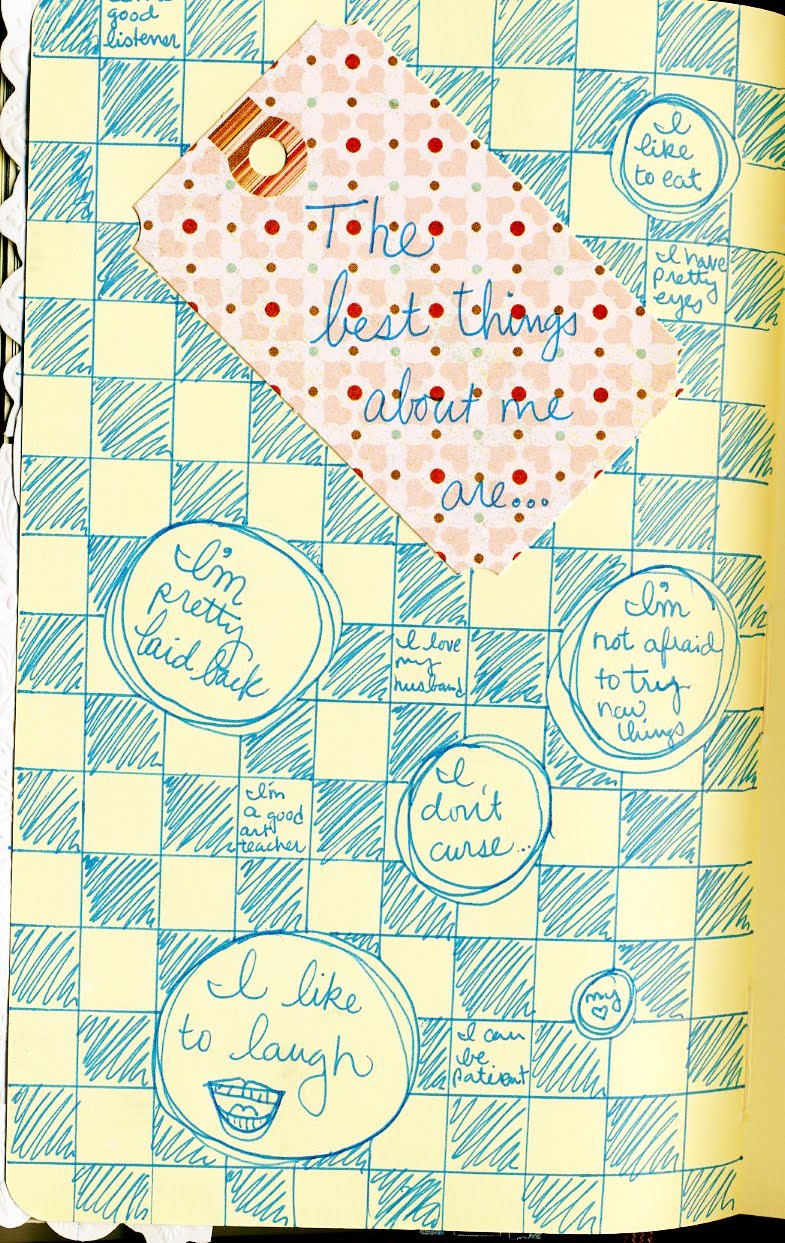 good
listener
I
like
to eat
The
best things
about me
are...
I have
pretty
eyes
I'm
pretty
laid back
I love
my
husband
I'm
not afraid
to try
new
things
I
don't
curse...
I'm
a good
art
teacher
I like
to laugh
my
I can
be
patient